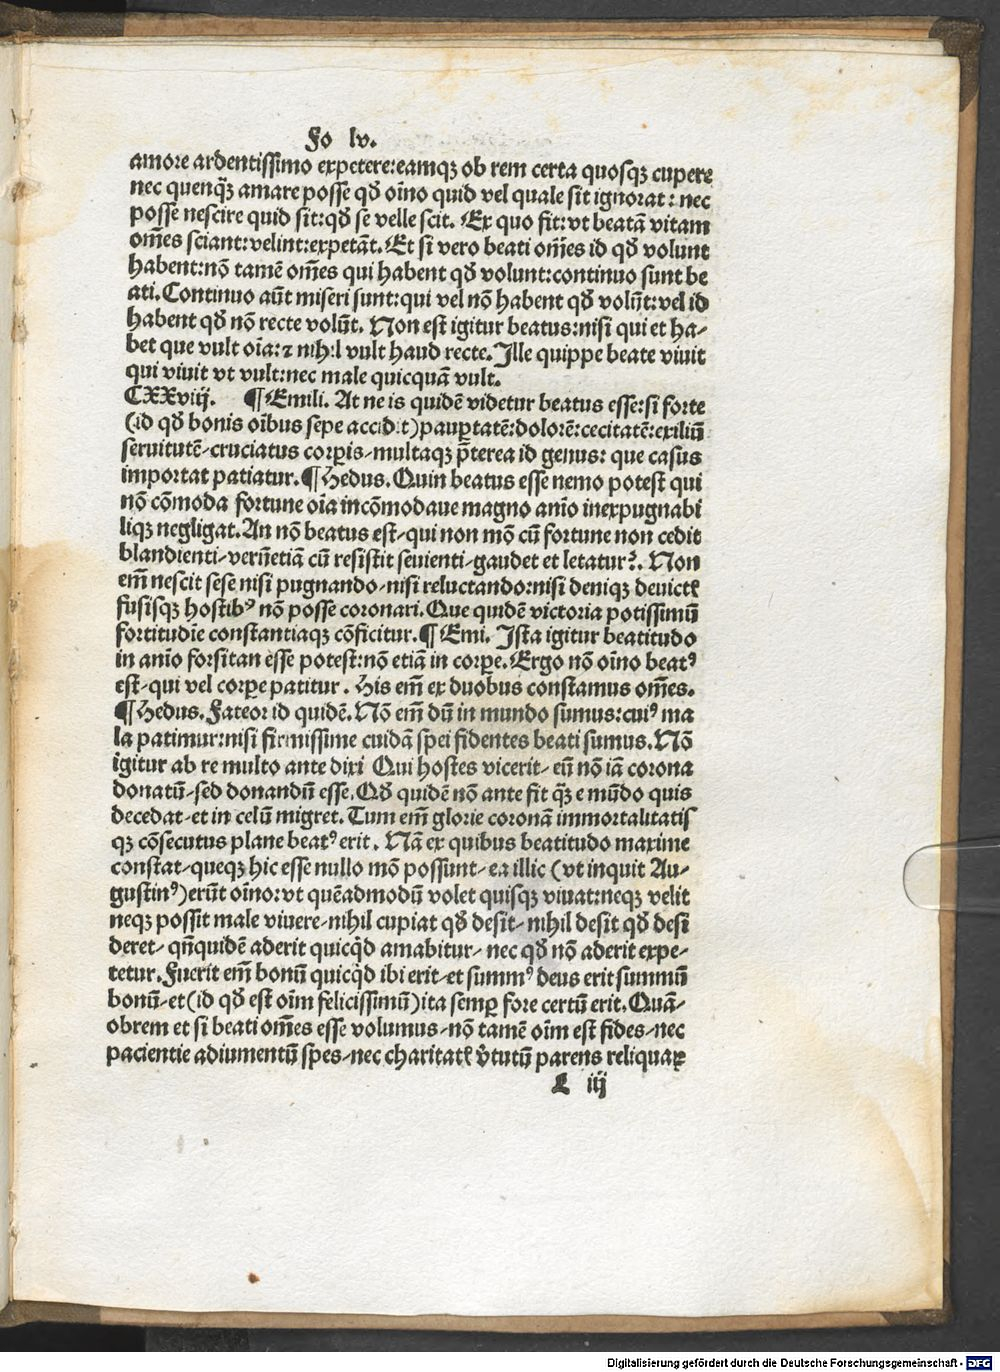 Fo lv.
amore ardentissimo expetere:eamqꝫ ob rem certa quosqꝫ cupere
nec quenqꝫ̃ amare posse qđ oĩno quid vel quale sit ignorat: nec
posse nescire quid sit:qđ se velle scit. Ex quo fit:vt beatã vitam
om̃es sciant:velint:expetãt. Et si vero beati om̃es id qđ volunt
habent:nõ tamẽ om̃es qui habent qđ volunt:continuo sunt be
ati. Continuo aũt miseri sunt:qui vel nõ habent qđ volũt:vel id
habent qđ nõ recte volũt. Non est igitur beatus:nisi qui et ha-
bet que vult oĩa:⁊ nihil vult haud recte. Ille quippe beate viuit
qui viuit vt vult:nec male quicquã vult.
CXXviij. ¶ Emili. At ne is quidẽ videtur beatus esse:si forte
(id qđ bonis oĩbus sepe accidit)paup̱tatẽ:dolorẽ:cecitatẽ:exiliũ
seruitutẽ-cruciatus corp̱is-multaqꝫ p̃terea id genus: que casus
importat patiatur. ¶ Hedus. Quin beatus esse nemo potest qui
nõ cõmoda fortune oĩa incõmodaue magno anĩo inexpugnabi
liqꝫ negligat. An nõ beatus est-qui non mõ cũ fortune non cedit
blandienti-verũetiã cũ resistit seuienti-gaudet et letatur?. Non
em̃ nescit sese nisi pugnando-nisi reluctando:nisi deniqꝫ deuictꝭ
fusisqꝫ hostibꝰ nõ posse coronari. Que quidẽ victoria potissimũ
fortitudĩe constantiaqꝫ cõficitur. ¶ Emi. Ista igitur beatitudo
in anĩo forsitan esse potest:nõ etiã in corp̱e. Ergo nõ oĩno beatꝰ
est-qui vel corp̱e patitur. His em̃ ex duobus constamus om̃es.
¶ Hedus. Fateor id quidẽ. Nõ em̃ dũ in mundo sumus:cuiꝰ ma
la patimur:nisi firmissime cuidã spei fidentes beati sumus. Nõ
igitur ab re multo ante dixi Qui hostes vicerit-eũ nõ iã corona
donatũ-sed donandũ esse. Qđ quidẽ nõ ante fit qꝫ̃ e mũdo quis
decedat-et in celũ migret. Tum em̃ glorie coronã immortalitatis
qꝫ cõsecutus plane beatꝰ erit. Nã ex quibus beatitudo maxime
constat-queqꝫ hic esse nullo mõ possunt-ea illic (vt inquit Au-
gustinꝰ)erũt oĩno:vt quẽadmodũ volet quisqꝫ viuat:neqꝫ velit
neqꝫ possit male viuere-nihil cupiat qđ desit-nihil desit qđ desi
deret-qñquidẽ aderit quicqͥd amabitur-nec qđ nõ aderit expe-
tetur. Fuerit em̃ bonũ quicqͥd ibi erit-et summꝰ deus erit summũ
bonũ-et(id qđ est oĩm felicissimũ)ita semp̱ fore certũ erit. Quã-
obrem et si beati om̃es esse volumus-nõ tamẽ oĩm est fides-nec
pacientie adiumentũ spes-nec charitatꝭ v̓tutũ parens reliquaꝝ
L iij
Digitalisierung gefördert durch die Deutsche Forschungsgemeinschaft - DFG